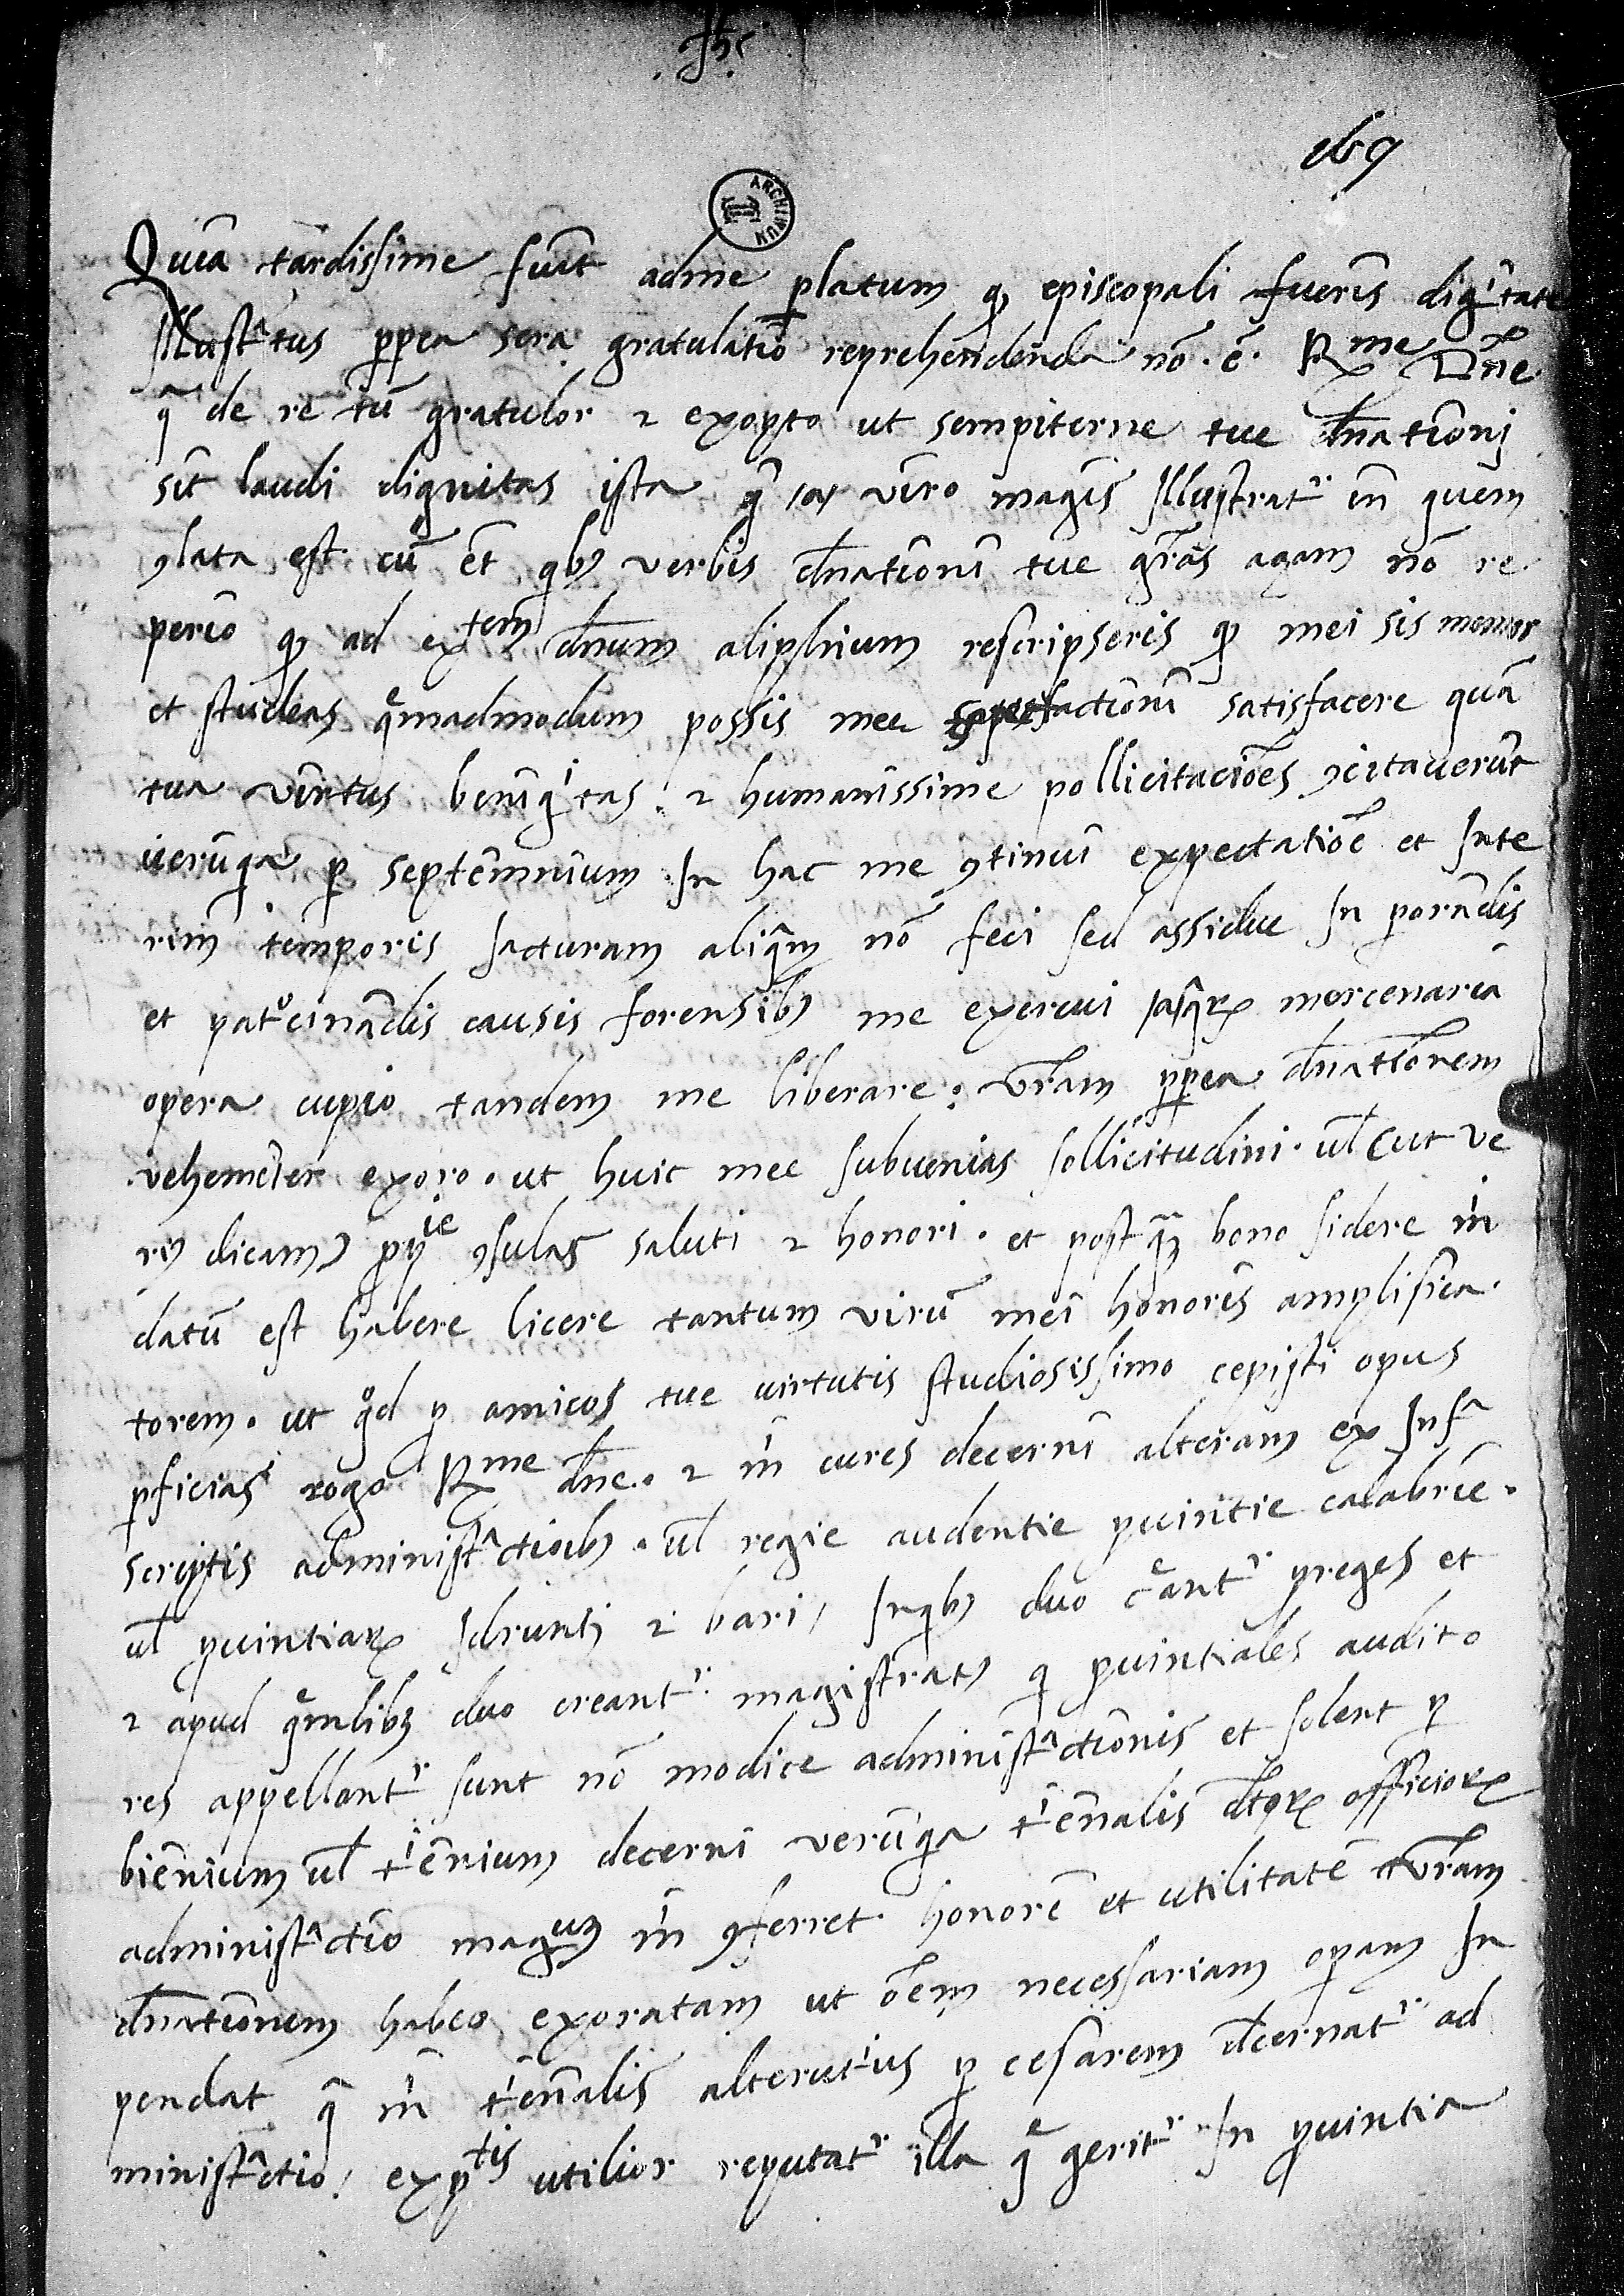 Jhs
169
ARCHIVUM
Quia tardissime fuit adme platum q episcopali fueris dignitate
Illustratus pp̱ea sera gratulatio reprehendenda nō. ē. Rme Dñe
q̄ de re tū gratulor 2 exopto ut sempiterne tue dñationi
sit laudi dignitas ista viro magis Illustrat in quem
9lata est cū et qb9 verbis dñationi tue grãs agam nō re
perio q ad extem dnum aliphium rescripseris q mei sis memor
et studeas qmadmodum possis mee satisfacere quã
tua virtus benigitas. 2 humanissime pollicitaciões 9citaverūt
verūqa p septennium In hac me 9tinui expectatiōe et Inte
rim temporis Iacturam aliqm nō feci sed assidue In
et patocinãdis causis forensib9 me exercui mercenaria
opera cupio tandem me liberare: vr̃am pp̱ea dñationem
vehemēter exoro. ut huic mee subvenias sollicitudini. ul (ut ve
ri9 dicam) 9sulas saluti 2 honori. et postqm bono sidere m
datū est habere licere tantum virū mei honoris amplifica
torem. ut qd p amicos tue virtutis studiosissimo cepisti opus
pficias rogo Rme dñe. 2 m cures decerni alteram ex Infa
scriptis administactioib9. ul regie audentie pvintie calabrie.
ul pvintiaR Idrunti 2 bari, Inqb9 duo cant preges et
2 apud qmlib3 duo creant magistrat9 q pvintiales audito
res appellant sunt nō modice administactionis et solent p
biēnium ul tiēnium decerni verūqa tiēnalis officiorR
administactio m 9ferret honorē et utilitatē vr̃am
dñationem habeo exoratam ut ōem necessariam opam In
pendat q̄ m tiēnalis alterutius p cesarem dcernat ad
ministactio, exptis utilior reputat illa q gerit In pvintia